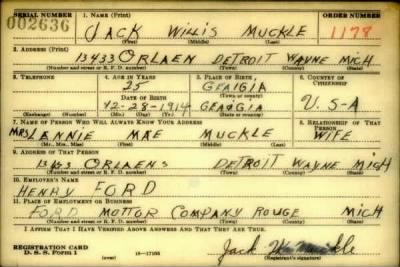 SERIAL NUMBER 1. NAME (Print) ORDER NUMBER
002636 JACK WILLIS MUCKLE 1178
(First) (Middle) (Last)
2. ADDRESS (Print)
13433 ORLAEN DETROIT WAYNE MICH
(Number and street or R. F. D. number) (Town) (County) (State)
3. TELEPHONE 4. AGE IN YEARS 5. PLACE OF BIRTH 6. COUNTRY OF CITIZENSHIP
25 GEAIGIA
DATE OF BIRTH (Town or county)
12-28-1914 GEAIGIA U.S-A
(Exchange) (Number) (Mo.) (Day) (Yr.) (State or country)
7. NAME OF PERSON WHO WILL ALWAYS KNOW YOUR ADDRESS 8. RELATIONSHIP OF THAT PERSON
MRS LENNIE MAE MUCKLE WIFE
(Mr., Mrs., Miss) (First) (Middle) (Last)
9. ADDRESS OF THAT PERSON
ORLAENS DETROIT WAYNE MICH
(Number and street or R. F. D. number) (Town) (County) (State)
10. EMPLOYER'S NAME
HENRY FORD
11. PLACE OF EMPLOYMENT OR BUSINESS
FORD MOTTOR COMPANY ROUGE MICH
(Number and street or R. F. D. number) (Town) (County) (State)
I AFFIRM THAT I HAVE VERIFIED ABOVE ANSWERS AND THAT THEY ARE TRUE.
REGISTRATION CARD
D. S. S. Form 1 (over) 16—17105 Jack W Muckle
(Registrant's signature)